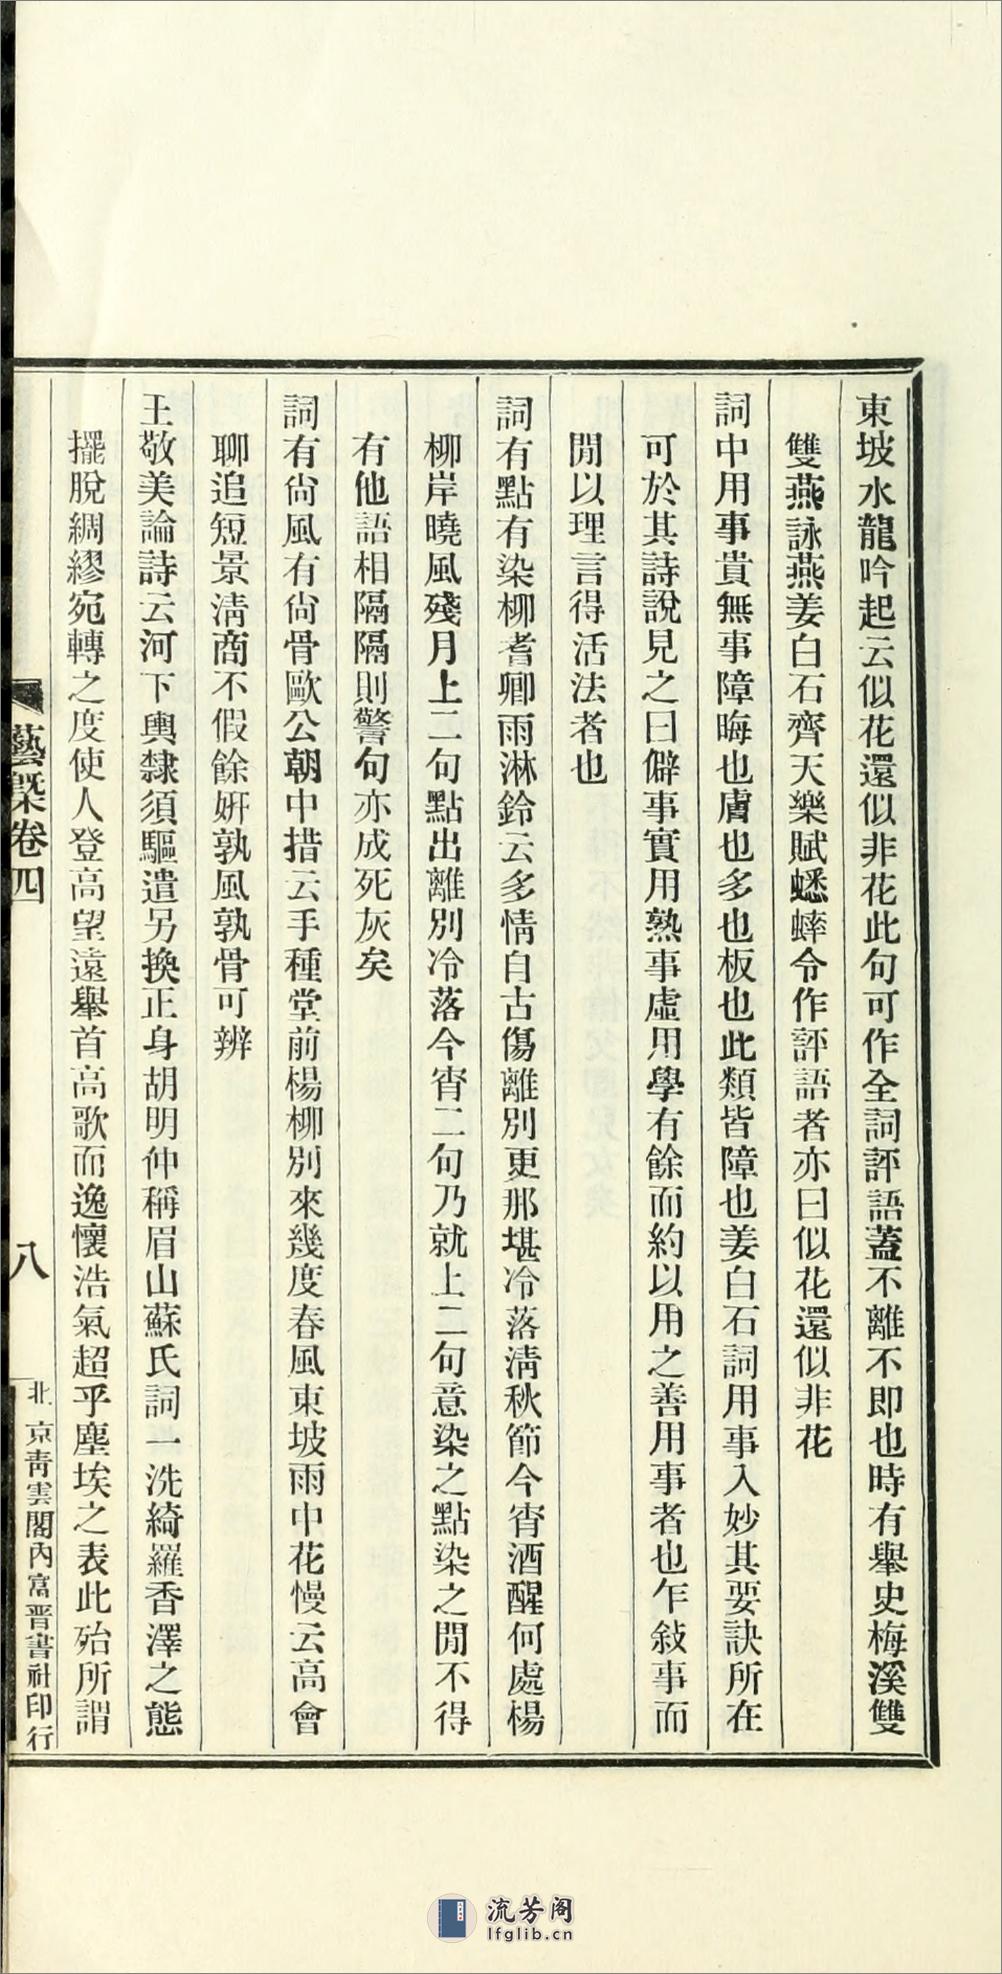 東坡水龍吟起云似花還似非花此句可作全詞評語蓋不離不即也時有舉史梅溪雙
雙燕詠燕姜白石齊天樂賦蟋蟀令作評語者亦曰似花還似非花
詞中用事貴無事障晦也膚也多也板也此類皆障也姜白石詞用事入妙其要訣所在
可於其詩說見之曰僻事實用熟事虛用學有餘而約以用之善用事者也乍敍事而
閒以理言得活法者也
詞有點有染柳耆卿雨淋鈴云多情自古傷離別更那堪冷落淸秋節今宵酒醒何處楊
柳岸曉風殘月上二句點出離別冷落今宵二句乃就上二句意染之點染之閒不得
有他語相隔隔則警句亦成死灰矣
詞有尙風有尙骨歐公朝中措云手種堂前楊柳別來幾度春風東坡雨中花慢云高會
聊追短景淸商不假餘姸孰風孰骨可辨
王敬美論詩云河下輿隸須驅遣另換正身胡明仲稱眉山蘇氏詞一洗綺羅香澤之態
擺脫綢繆宛轉之度使人登高望遠舉首高歌而逸懷浩氣超乎塵埃之表此殆所謂
藝槩卷四
八
北京靑雲閣內富晋書社印行
流芳阁
lfglib.cn